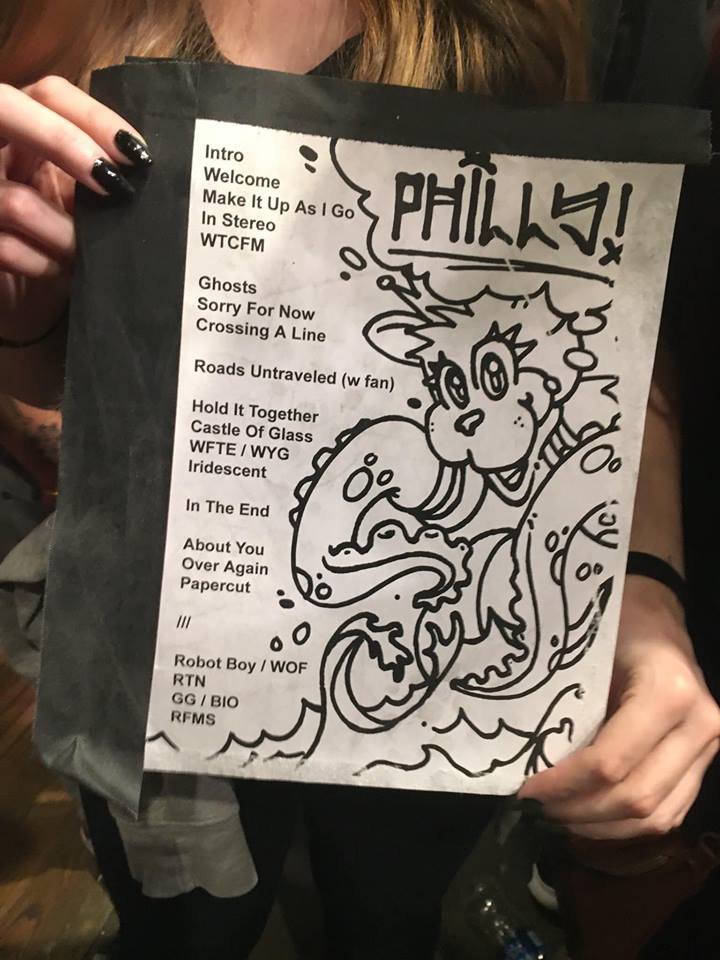 Intro
Welcome
Make It Up As I Go
In Stereo
WTCFM
Ghosts
Sorry For Now
Crossing A Line
Roads Untraveled (w fan)
Hold It Together
Castle Of Glass
WFTE / WYG
Iridescent
In The End
About You
Over Again
Papercut
///
Robot Boy / WOF
RTN
GG / BIO
RFMS
PHILLY!